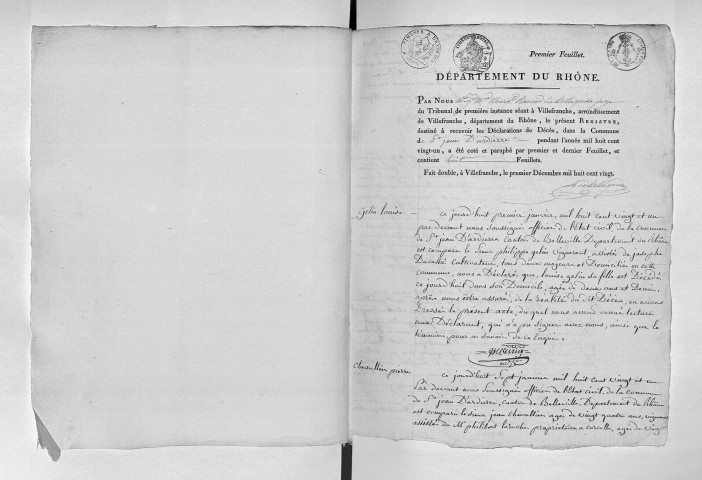 Premier Feuillet.
DÉPARTEMENT DU RHÔNE.
PAR NOUS
du Tribunal de première instance séant à Villefranche, arrondissement
de Villefranche, département du Rhône, le présent REGISTRE,
destiné à recevoir les Déclarations de Décès, dans la Commune
d St jean D'ardierre pendant l'année mil huit cent
vingt-un, a été coté et paraphé par premier et dernier Feuillet, et
contient huit Feuillets.
Fait double, à Villefranche, le premier Décembre mil huit cent vingt.
gelin louise
ce jourd'huit premier janvier, mil huit cent vingt et un
par devant nous soussigné officier de l'Etat civil, de la commune
de St jean D'ardierre Canton de Belleville Departement du Rhône
est comparu le sieur philippe gelin vigneront, assistée de josephe
Cultivateur, tous deux majeurs et Domiciliés en cette
commune, nous a Déclaré que, louise gelin sa fille est Décédé
ce jourd huit dans son Domicile, agée de deux ans et Demi,
après nous estre assuré, de la réalité du dit Décès, en avons
Dressé le présent acte, du quel nous avons donné lecture
aux Déclarant, qui n'a pu signer avec nous, ainsi que le
témoins pour ne savoir de ce Enquis.
chevallier pierre
ce jourd'huit Sept janvier mil huit Cent vingt et un
Par devant nous Soussigné officier de l'Etat civil, de la commune
de St jean D'ardierre, canton de Belleville Departement du Rhône
est comparu le sieur jean chevallier agée de vingt quatre ans, vigneront
assistée de Mr philibert laroche propriétaire a corcelle, agée de vingt